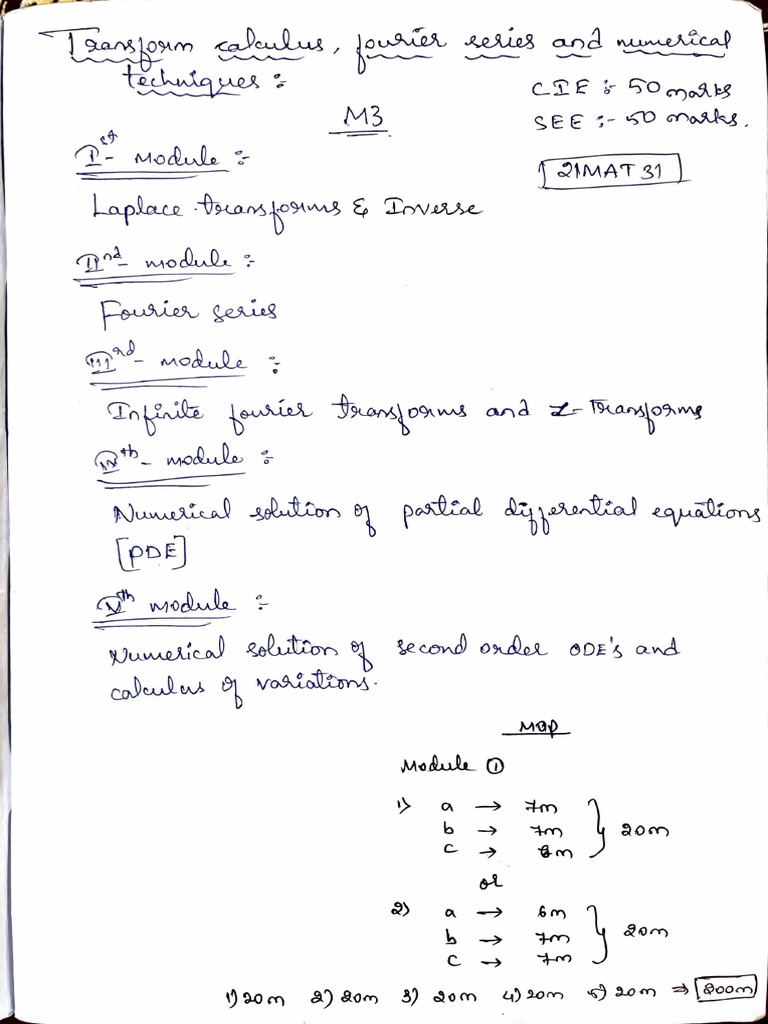 Transform calculus, fourier series and numerical
techniques :-
CIE :- 50 marks
M3
SEE :- 50 marks.
Ist module :-
21MAT31
Laplace transforms & Inverse
IInd- module :-
Fourier series
IIIrd- module :-
Infinite fourier transforms and Z-Transforms
IVth- module :-
Numerical solution of partial differential equations
[PDE]
Vth module :-
Numerical solution of second order ODE's and
calculus of variations.
MQP
Module ①
1) a → 7m
b → 7m } 20m
c → 6m
or
2) a → 6m
b → 7m } 20m
c → 7m
1) 20m 2) 20m 3) 20m 4) 20m 5) 20m ⇒ 200m